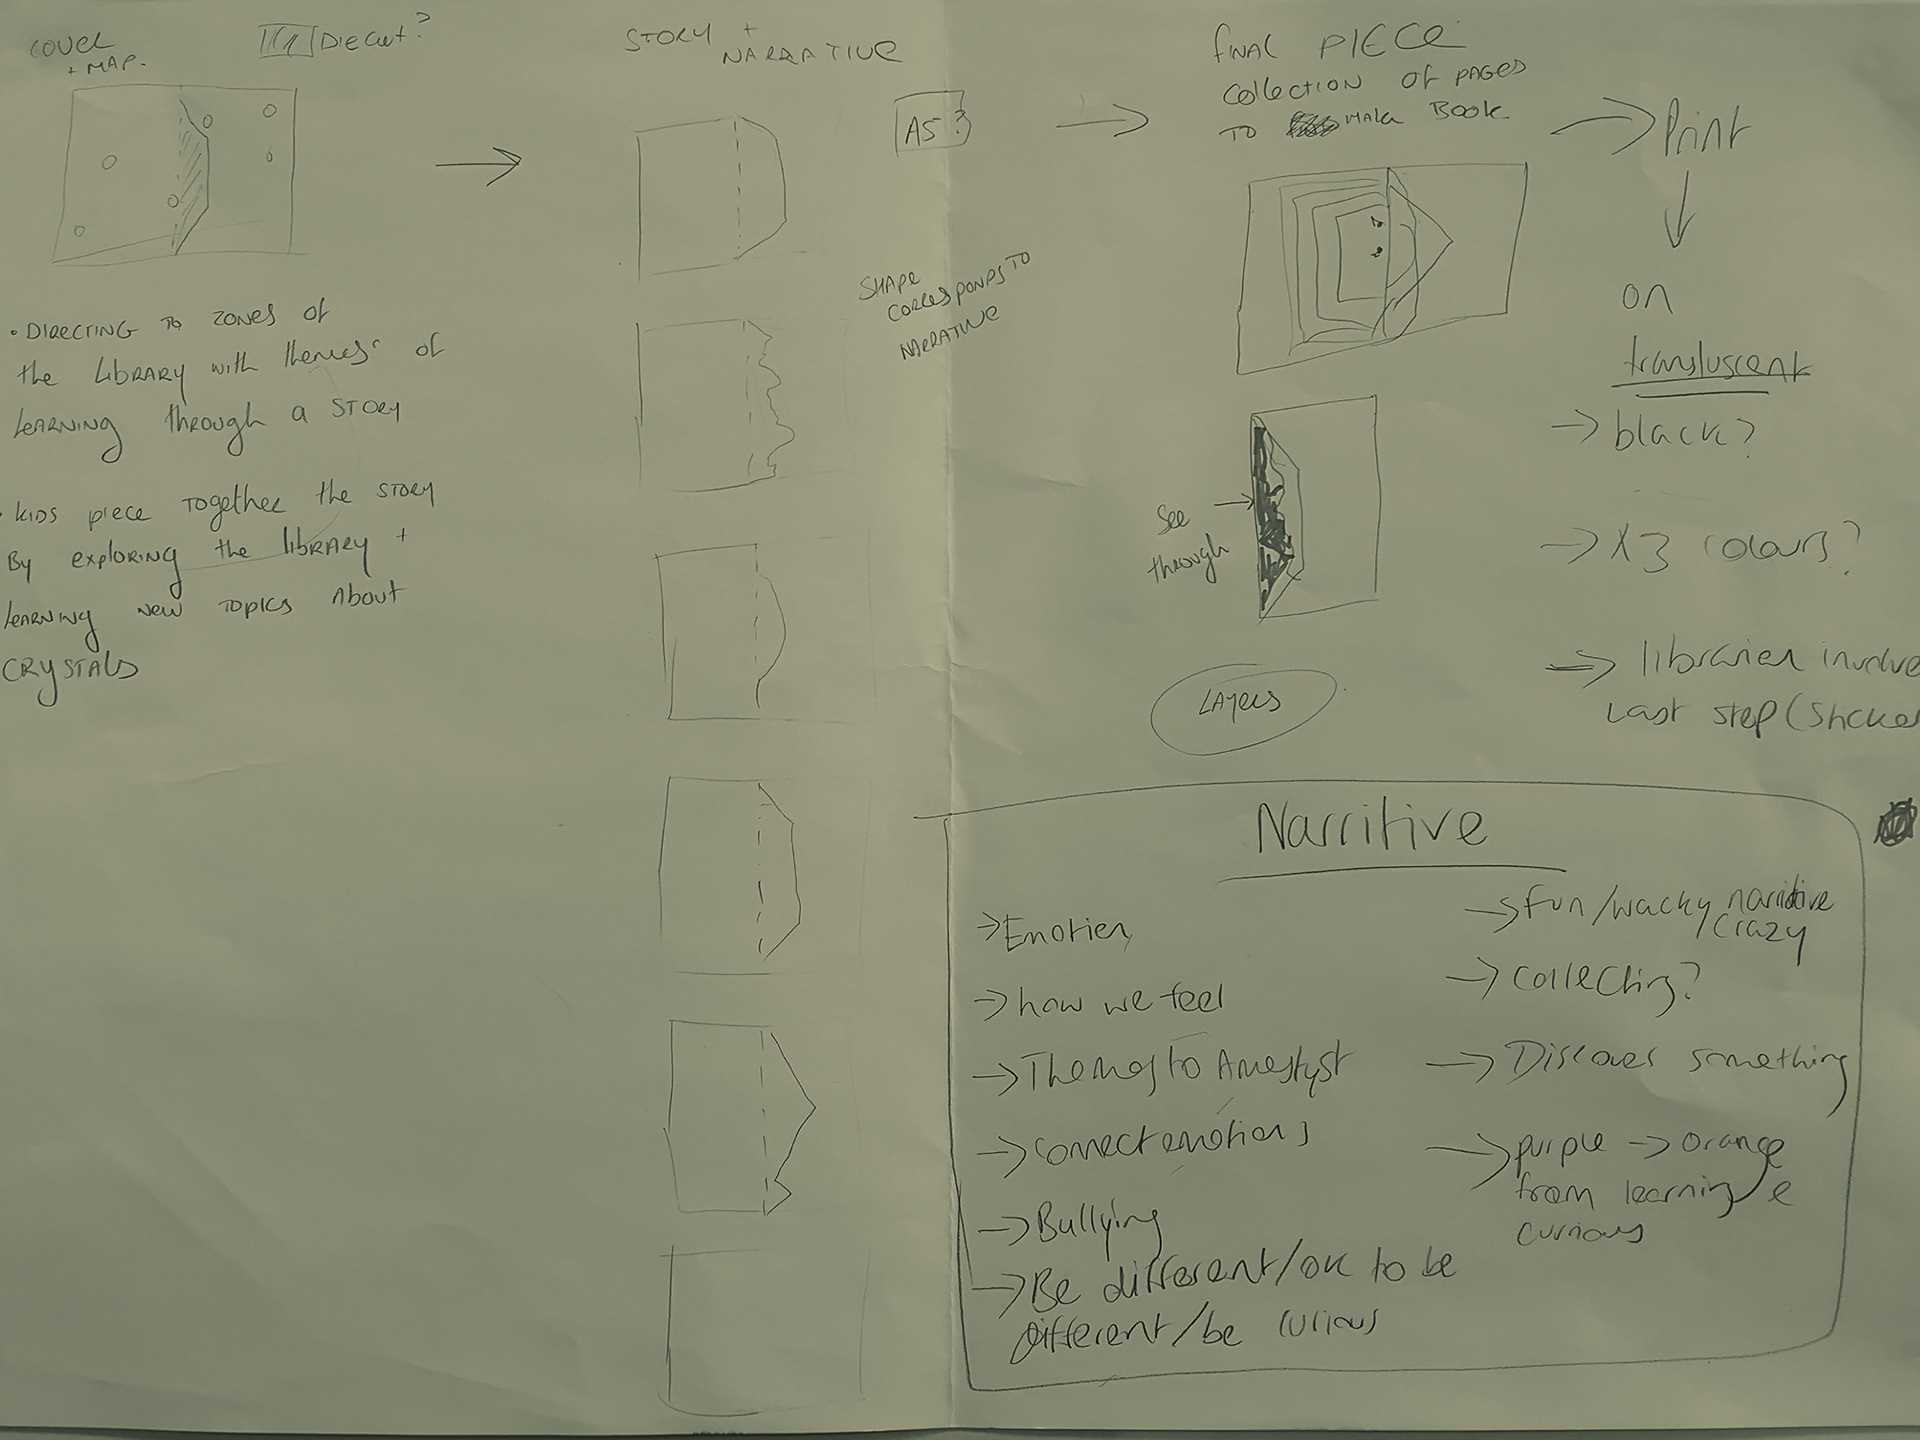 COVER
+ MAP.
Diecut?
STORY +
NARRATIVE
A5?
SHAPE
CORRESPONDS TO
NARRATIVE
FINAL PIECE
COLLECTION OF PAGES
TO MAKE BOOK
Print
on
transluscent
→ black?
→ X 3 colours?
→ librarien involve
Last step (Sticker
• DIRECTING TO ZONES OF
the LIBRARY with themes of
LEARNING through a STORY
• KIDS piece TOGETHER the STORY
By exploring the LIBRARY +
LEARNING NEW TOPICS ABOUT
CRYSTALS
See
through
LAYERS
Narritive
→ Emotien
→ how we feel
→ to Amestyst
→ Connect emotions
→ Bullying
→ Be different/ok to be
different/be curious
→ fun/wacky narritive
/crazy
→ Collecting?
→ Discover something
→ purple → orange
from learning e
curious